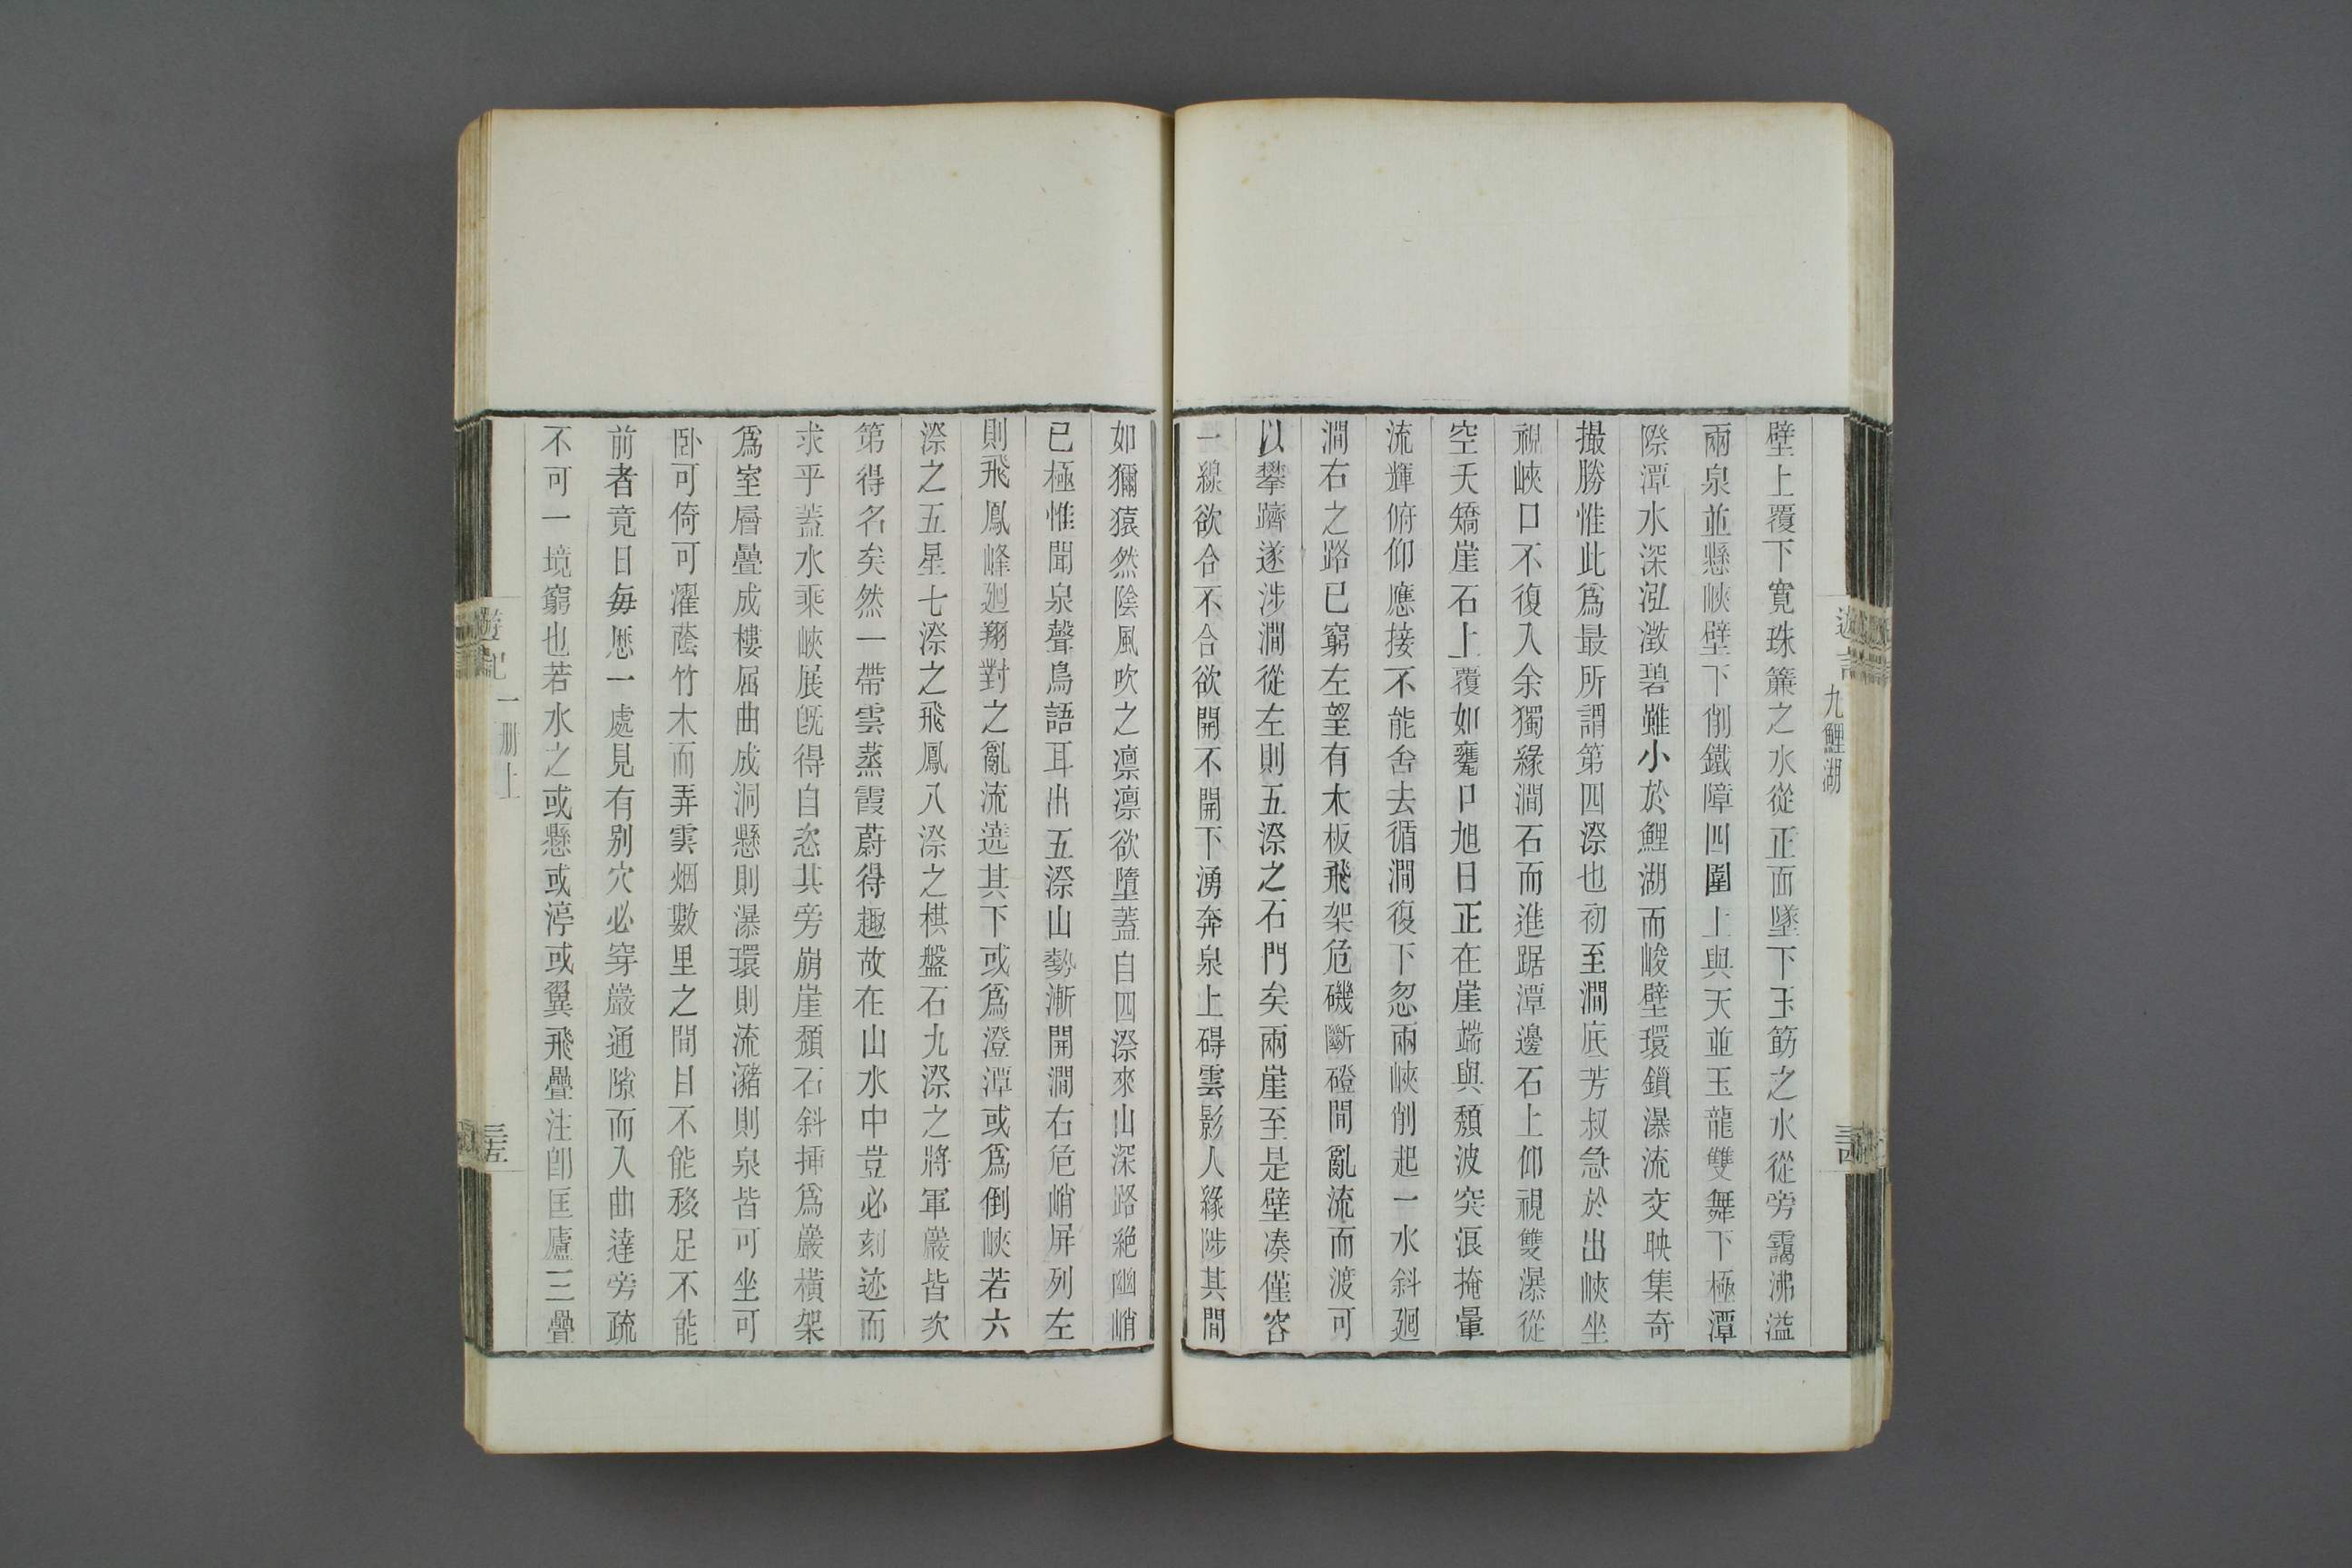 遊記
九鯉湖
三四
壁上覆下寛珠簾之水從正面墜下玉筯之水從旁靄沸溢
兩泉並懸峽壁下削鐵障四圍上與天並玉龍雙舞下極潭
際潭水深泓澂碧雖小於鯉湖而峻壁環鎖瀑流交映集奇
撮勝惟此爲最所謂第四漈也初至澗底芳叔急於出峽坐
視峽口不復入余獨緣澗石而進踞潭邊石上仰視雙瀑從
空夭矯崖石上覆如甕口旭日正在崖端與頹波突浪掩暈
流輝俯仰應接不能舍去循澗復下忽兩峽削起一水斜廻
澗右之路已窮左望有木板飛架危磯斷磴間亂流而渡可
以攀躋遂涉澗從左則五漈之石門矣兩崖至是壁凑僅容
一線欲合不合欲開不開下湧奔泉上碍雲影人緣陟其間
如獮猿然陰風吹之凛凛欲墮蓋自四漈來山深路絶幽峭
已極惟聞泉聲鳥語耳出五漈山勢漸開澗右危峭屏列左
則飛鳳峰廻翔對之亂流遶其下或爲澄潭或爲倒峽若六
漈之五星七漈之飛鳳八漈之棋盤石九漈之將軍巖皆次
第得名矣然一帶雲蒸霞蔚得趣故在山水中豈必刻迹而
求乎蓋水乘峽展既得自恣其旁崩崖頹石斜揷爲巖橫架
爲室層疊成樓屈曲成洞懸則瀑環則流瀦則泉皆可坐可
臥可倚可濯蔭竹木而弄雲烟數里之間目不能移足不能
前者竟日每懸一處見有别穴必穿巖通隙而入曲達旁疏
不可一境窮也若水之或懸或渟或翼飛疊注卽匡廬三疊
遊記
一册上
三五